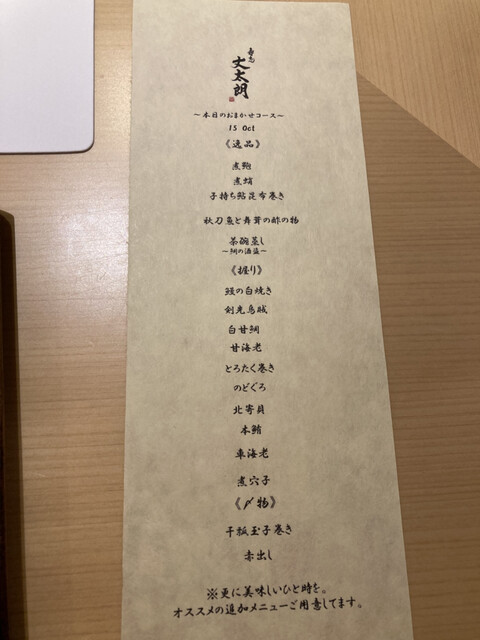 寿し
丈太朗
～本日のおまかせコース～
15 Oct
《逸品》
煮鮑
煮蛸
子持ち鮎昆布巻き
秋刀魚と舞茸の酢の物
茶碗蒸し
～鯛の酒盗～
《握り》
鰻の白焼き
剣先烏賊
白甘鯛
甘海老
とろたく巻き
のどぐろ
北寄貝
本鮪
車海老
煮穴子
《〆物》
干瓢玉子巻き
赤出し
※更に美味しいひと時を。
オススメの追加メニューご用意してます。